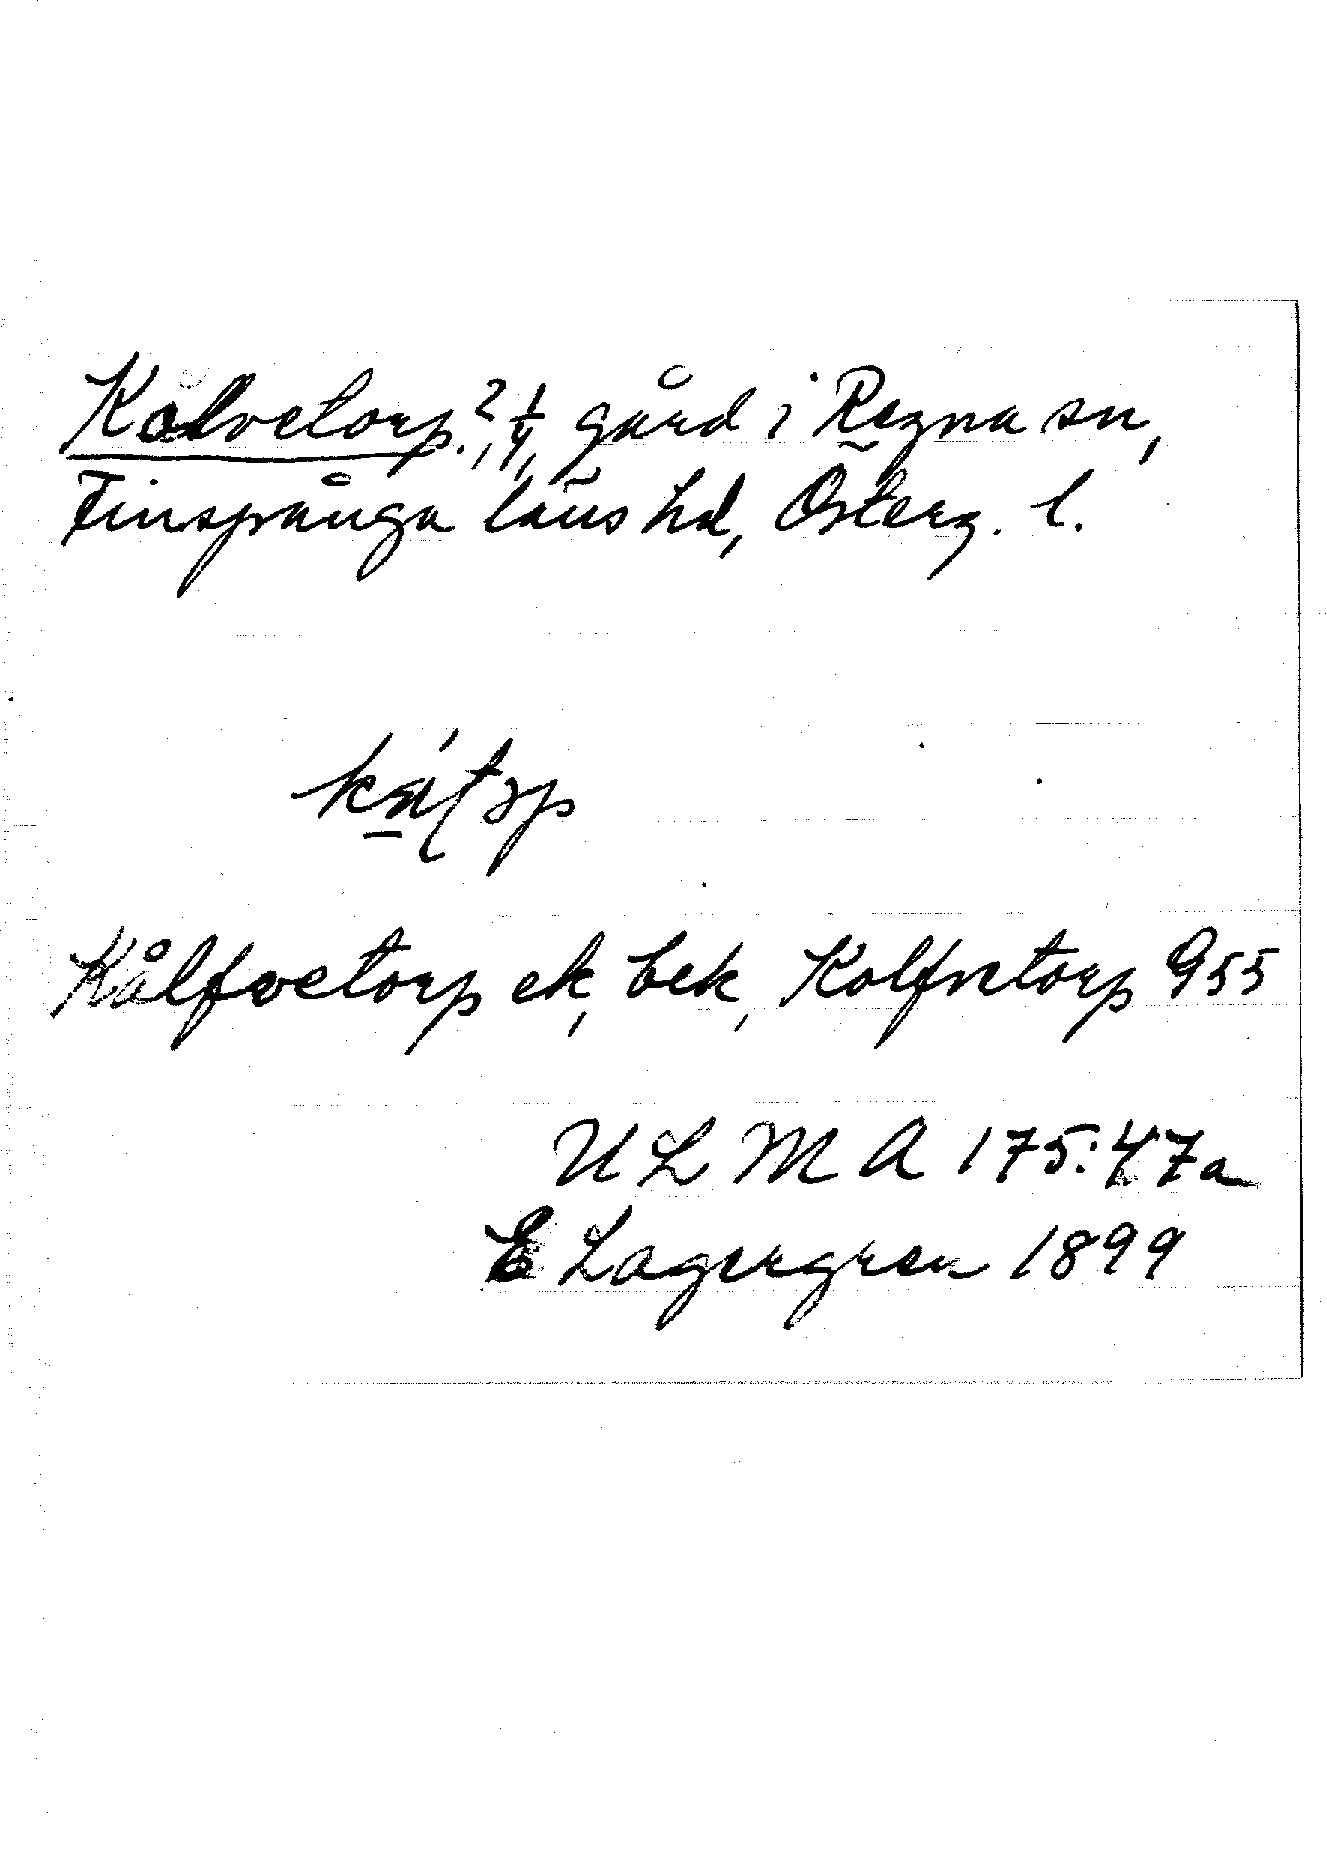 Kolvetorp?, 1/4, gård i Regna sn,
Finspånga läns hd, Österg. l.
Kålfvetorp ek, bek, Kolfvetorp 955
ULMA 175:47a
E Lagergren 1899